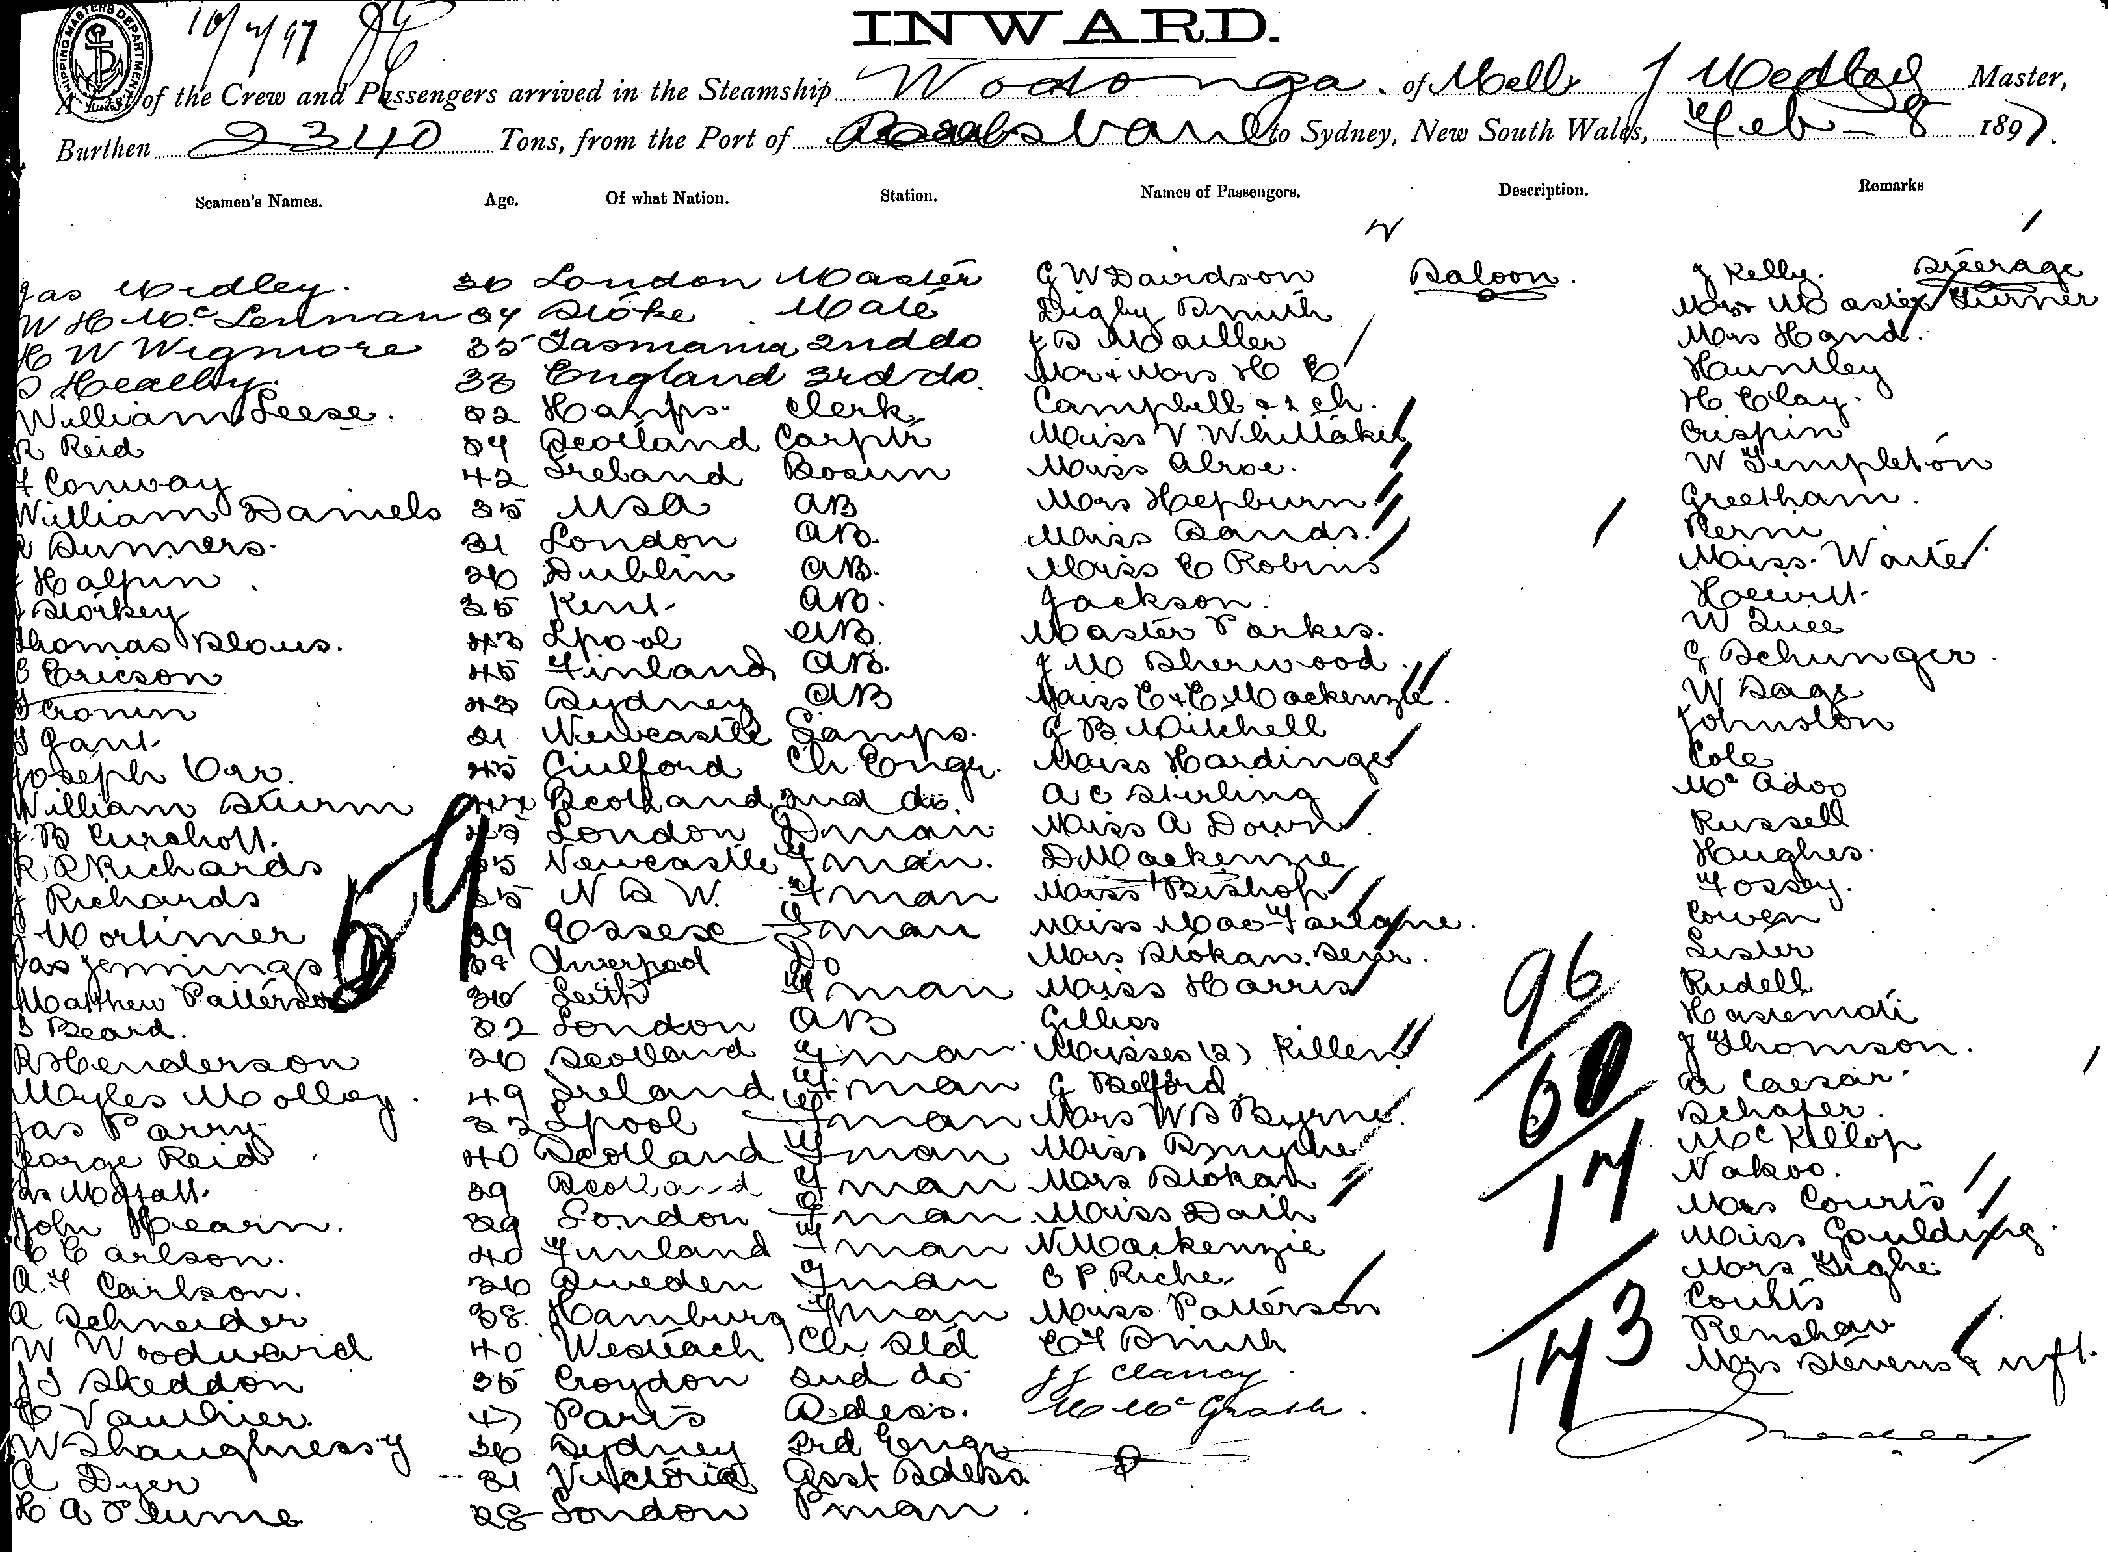 10/2/97
INWARD.
A of the Crew and Passengers arrived in the Steamship Wodonga of Melb J Medley Master,
Burthen 2340 Tons, from the Port of to Sydney, New South Wales, Feb 8 1897.
Seamen's Names. Age. Of what Nation. Station. Names of Passengers. Description. Remarks
Jas Medley. London Master G W Davidson Saloon. J Kelly. Steerage
W H McLennan 34 Stoke Mate Digby Smith Turner
H W Wigmore 35 Tasmania 2nd do J S Mailler Mrs Hand.
S Healby. 33 England 3rd do. Mr & Mrs H E Huntley
William Leese. 32 Hamps. Clerk Campbell & 2 ch. H Clay.
R Reid 34 Scotland Carptr Miss V Whittaker Crispin
Conway 42 Ireland Bosun Miss Alroe. W Templeton
William Daniels 35 USA AB Mrs Hepburn Greetham.
Sunners. 31 London AB. Miss Sands.
Halpin 26 Dublin AB. Miss E Robins Miss Waite
Storkey 25 Kent AB. Jackson. Hewitt
Thomas Slous. 43 Lpool AB. Master Parkes. W
E Ericson 45 Finland AB. J M Sherwood. G Schunger.
Cronin 43 Sydney AB Miss E & E Mackenzie. W Sage
Gant 21 Newcastle Lamps. G B Mitchell Johnston
Joseph Orr. 45 Guilford Ch Engr. Miss Hardinge Cole
William Sturm Scotland 2nd do. A C Stirling McAdoo
J B London Dman Miss A Down Russell
R Richards 35 Newcastle Fman. D Mackenzie Hughes.
J Richards 25 N S W. Fman Miss Bishop Fossey.
Mortimer 29 Essex Fman Miss MacFarlane. Cowen
59
Jas Jennings Liverpool Do Mrs Stokan. Senr. Lister
Matthew Patterson Leith Fman Miss Harris Rudell
96
S Beard. 32 London AB Gillies
R Henderson 26 Scotland Fman Misses (2) Killen J Thomson.
60
Myles Molloy. 49 Ireland Fman G Belford A Caesar.
Jas Parry Lpool Fman Mrs W S Byrne. Schafer.
George Reid 40 Scotland Fman Miss Smythe McKillop
17
Jas Moffatt. 39 Scotland Fman Mrs Stokan Nakoo.
John Hearn. 29 London Fman Miss Dath Mrs Courts
C E Carlson. 40 Finland Fman N Mackenzie Miss Goulding.
A F Carlson. 26 Sweden Fman C P Riche Mrs Tighe
A Schneider 38. Hamburg Fman Miss Patterson Coutts
173
W Woodward 40 Ch. Std E F Smith Renshaw
J S Skeddon 35 Croydon 2nd do J J Clancy. Mrs Stevens & inft.
E Vauthier. 47 Paris Sdess. M McGrath.
W Shaughnessy 26 Sydney 3rd Engr
A Dyer 31 Victoria Asst Sdess
H A Plume 28 London Pman.